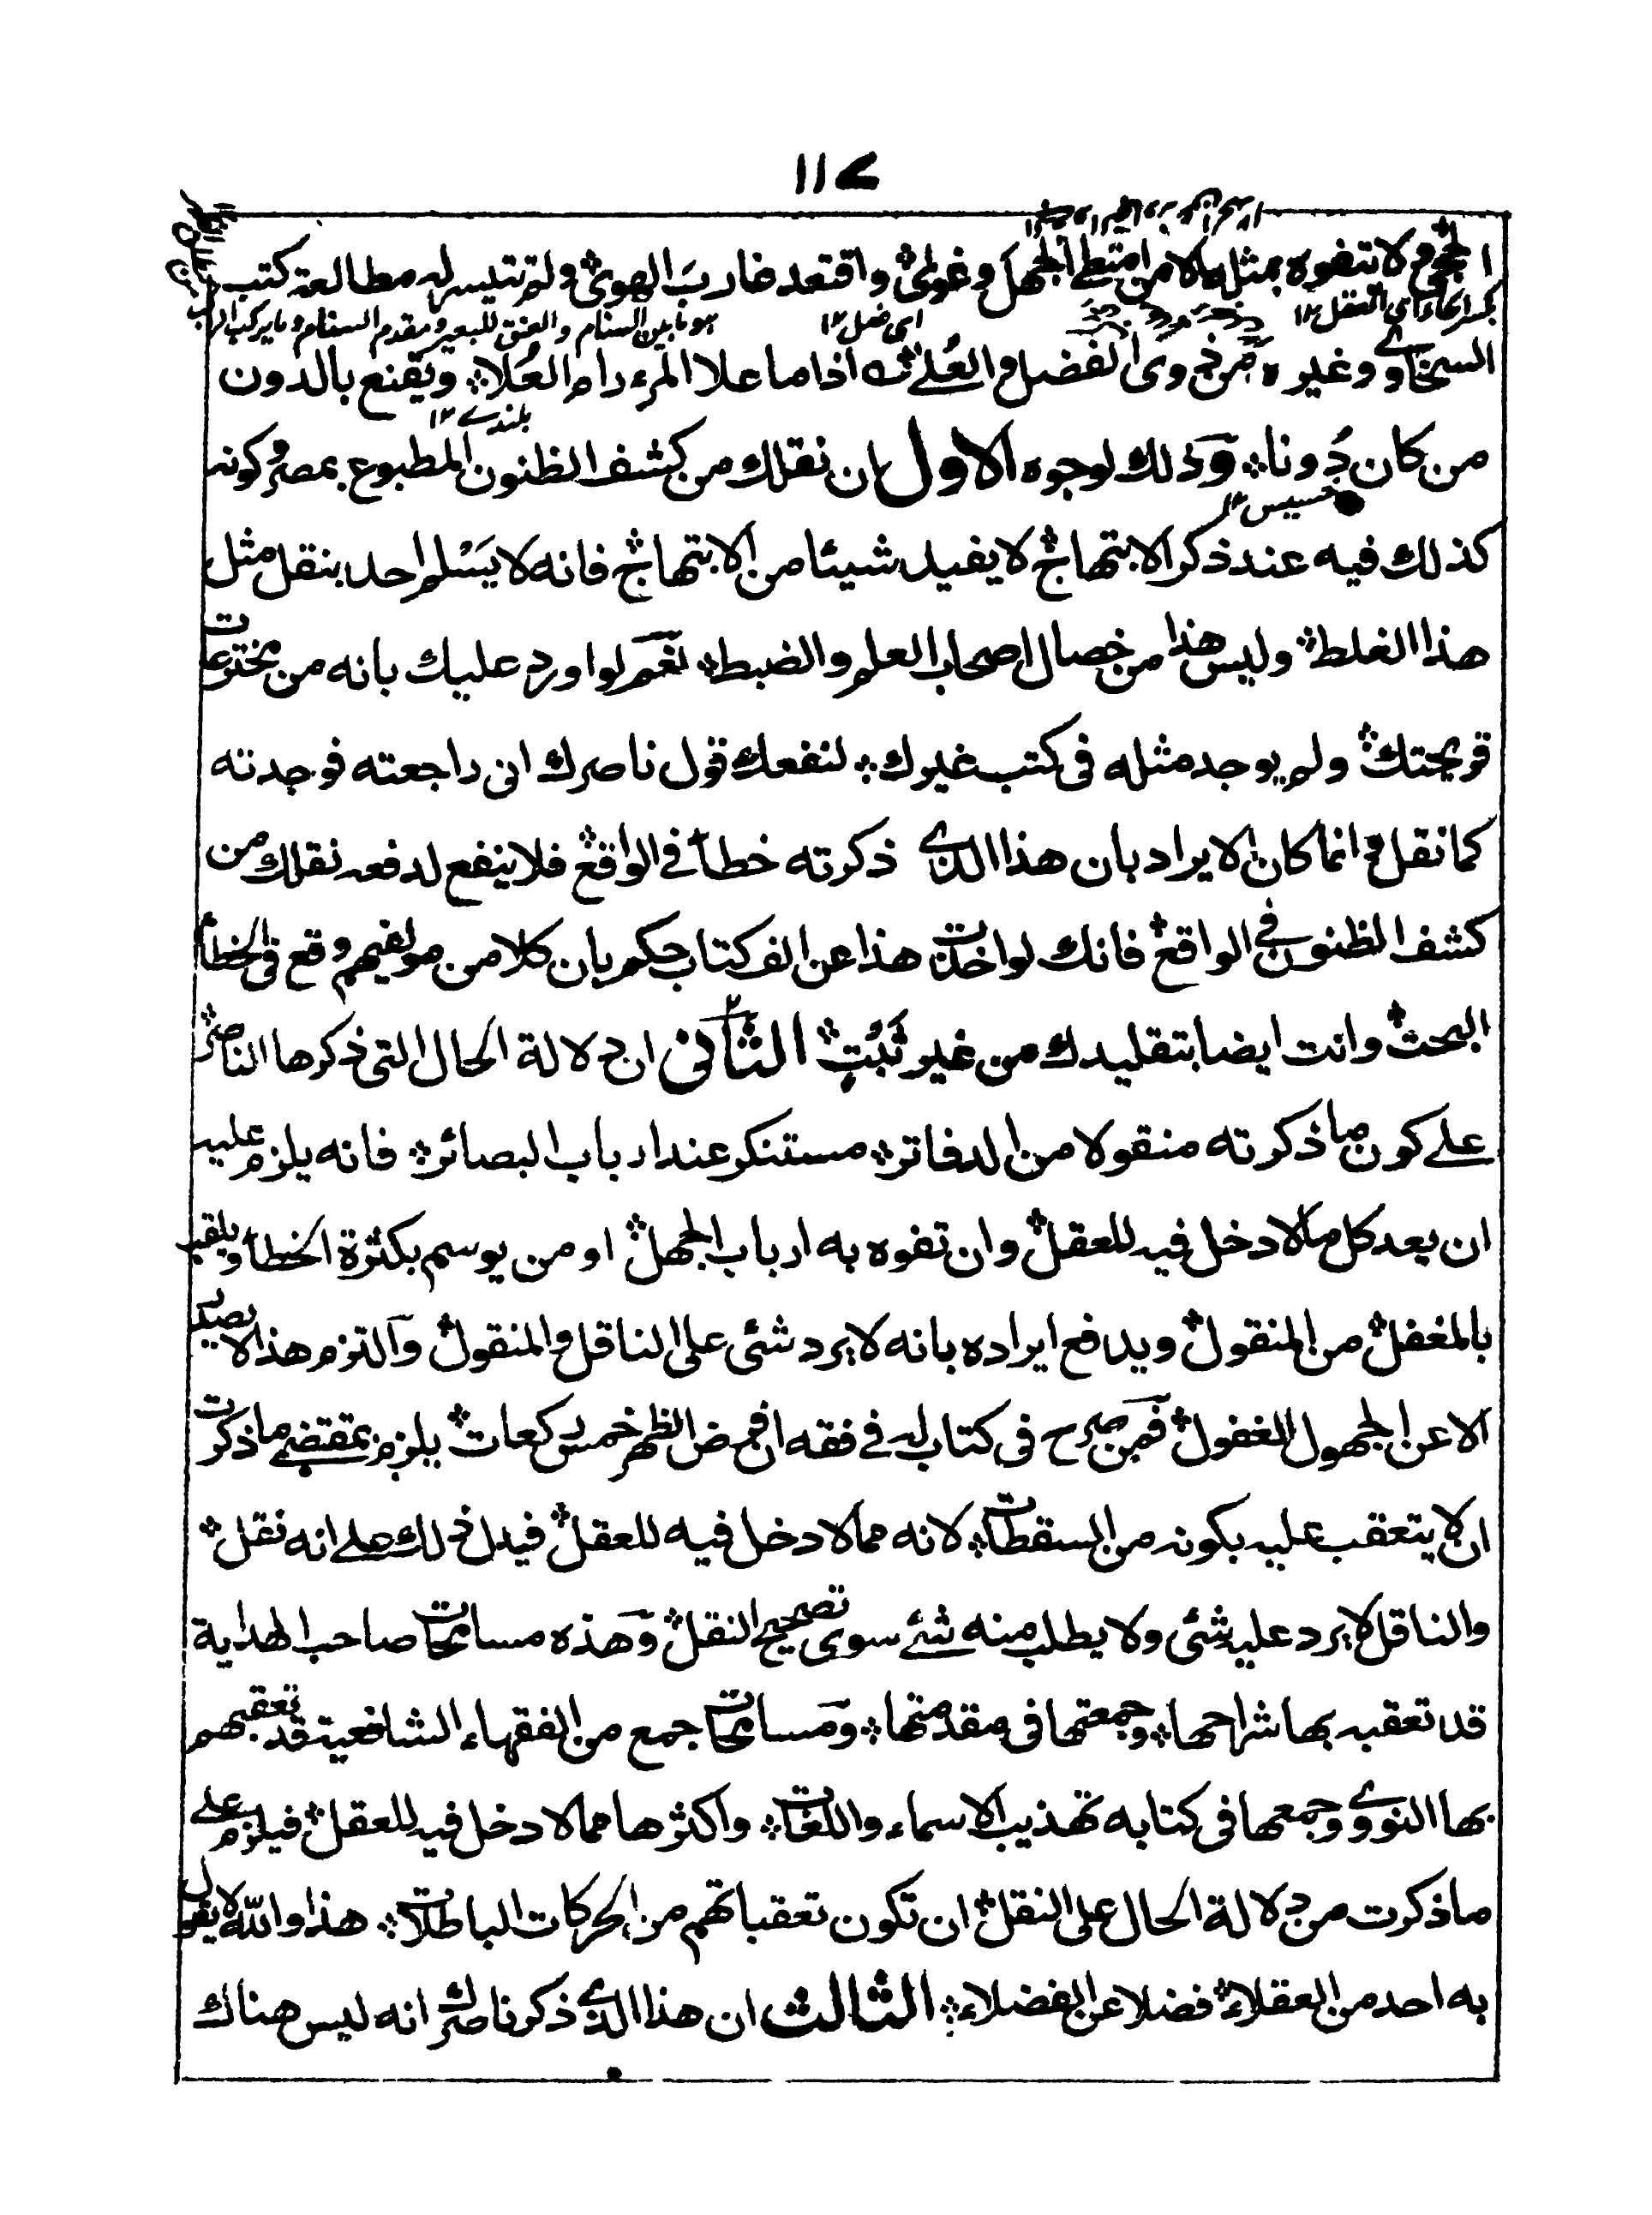 ١١٧
لا تتفوه بمثله الا من امتطى الجهل وغوى؞ واقتعد غارب الهوى؞ ولم تتيسر له مطالعة كتب
بكسر الحاء اي العقل ١٢
اى ضل ١٢
هو ما بين السنام والعنق للبعير ومقدم السنام وما يركب
السخاوى وغيره من ذوى الفضل والعُلے؞ اذا ما علا المرء رام العُلا؞ ويقنع بالدون
بلندے ١٢
من كان دُونا؞ وذلك لوجوه الاول ان نقلك من كشف الظنون المطبوع بمصر وكونه
خسيس ١٢
كذلك فيه عند ذكر الابتهاج؞ لا يفيد شيئا من الابتهاج؞ فانه لا يَسْلم احد بنقل مثل
هذا الغلط؞ وليس هذا من خصال اصحاب العلم والضبط؞ نعم لو اورد عليك بانه من مخترعات
قريحتك؞ ولم يوجد مثله فى كتب غيرك؞ لنفعك قول ناصرك انى راجعته فوجدته
كما نقل وانما كان الايراد بان هذا الذى ذكرته خطأ فى الواقع؞ فلا ينفع لدفعه نقلك من
كشف الظنون فى الواقع؞ فانك لو اخذت هذا عن الف كتاب حكم بان كلا من مولفيهم وقع فى الخطأ
البحث؞ وانت ايضا بتقليدك من غير ثَبُتٍ؞ الثانى ان دلالة الحال التى ذكرها الناصر؞
علے كون ما ذكرته منقولا من الدفاتر؞ مستنكر عند ارباب البصائر؞ فانه يلزم عليه
ان يعد كل ما لا دخل فيه للعقل؞ وان تفوه به ارباب الجهل؞ او من يوسم بكثرة الخطأ ويلقب
بالمغفل؞ من المنقول؞ ويدفع ايراده بانه لا يرد شئ على الناقل والمنقول؞ والتزم هذا لا يصدر
الا عن الجهول الغفول؞ فمن صرح فى كتاب له فے فقه ان فرض الظهر خمس ركعات؞ يلزم بمقتضے ما ذكرت
ان لا يتعقب عليه بكونه من السقطات؞ لانه مما لا دخل فيه للعقل؞ فيدل ذلك علے انه نقل؞
والناقل لا يرد عليه شئ ولا يطلب منه شئے سوى تصحيح النقل؞ وهذه مسامحات صاحب الهداية
قد تعقبه بها شراحها؞ وجمعتها فى مقدمتها؞ ومسامحات جمع من الفقهاء الشافعية قد تعقبهم
بها النووى وجمعها فى كتابه تهذيب الاسماء واللغات؞ واكثرها مما لا دخل فيه للعقل؞ فيلزم علے
ما ذكرت من دلالة الحال على النقل؞ ان تكون تعقباتهم من الحركات الباطلات؞ هذا والله لا يقول
به احد من العقلاء؞ فضلا عن الفضلاء؞ الثالث ان هذا الذى ذكر ناصرك انه ليس هناك